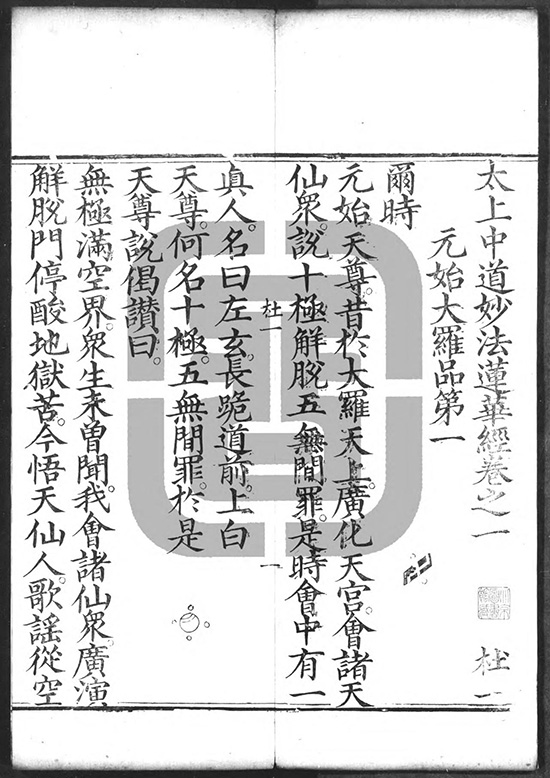 太上中道妙法蓮華經卷之一 杜一
元始大羅品第一
爾時
元始天尊。昔於大羅天上。廣化天宮。會諸天
仙眾。說十極解脫。五無間罪。是時會中有一
杜一 一
真人。名曰左玄。長跪道前。上白
天尊。何名十極。五無間罪。於是
天尊說偈讚曰。
無極滿空界。眾生未曾聞。我會諸仙眾。廣演
解脫門停酸地獄苦。今悟天仙人。歌謠從空